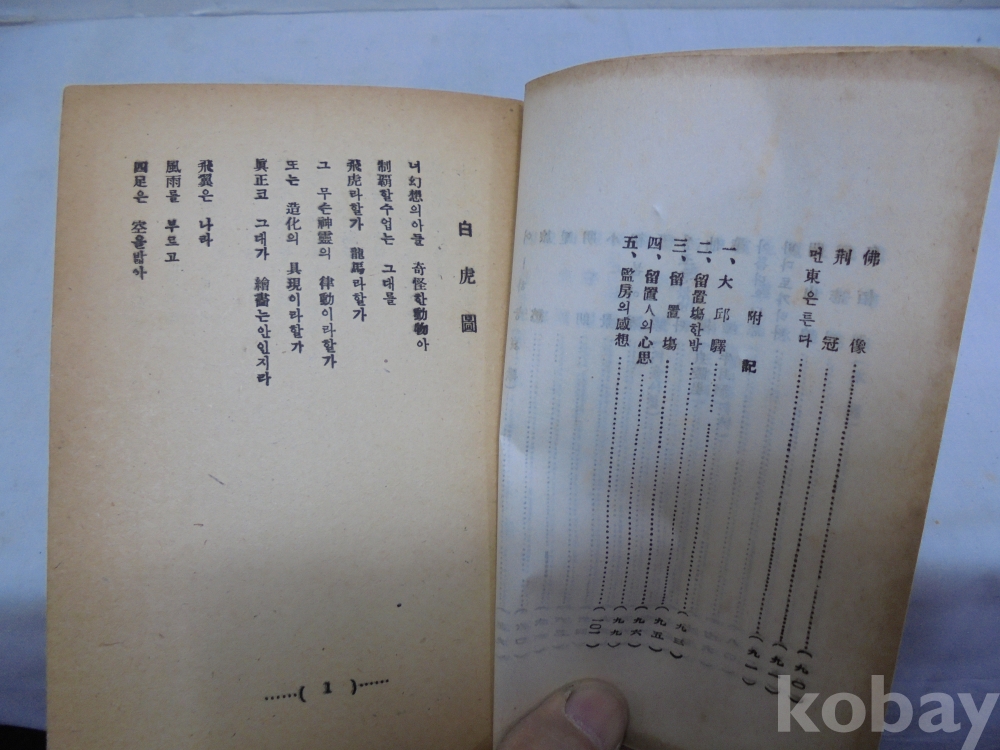 佛像……(九〇)
荊冠……(九一)
먼東은튼다……(九一)
附記
一、大邱驛……(九三)
二、留置塲한밤……(九五)
三、留置塲……(九六)
四、留置人의心思……(九九)
五、監房의感想……(一〇一)
白虎圖
너幻想의아들 奇怪한動物아
制覇할수업는 그대를
飛虎라할가 龍馬라할가
그 무슨神靈의 律動이라할가
또는 造化의 具現이라할가
眞正코 그대가 繪畵는안인지라
飛翼은 나라
風雨를 부르고
四足은 空을밟아
……( 1 )……
kobay